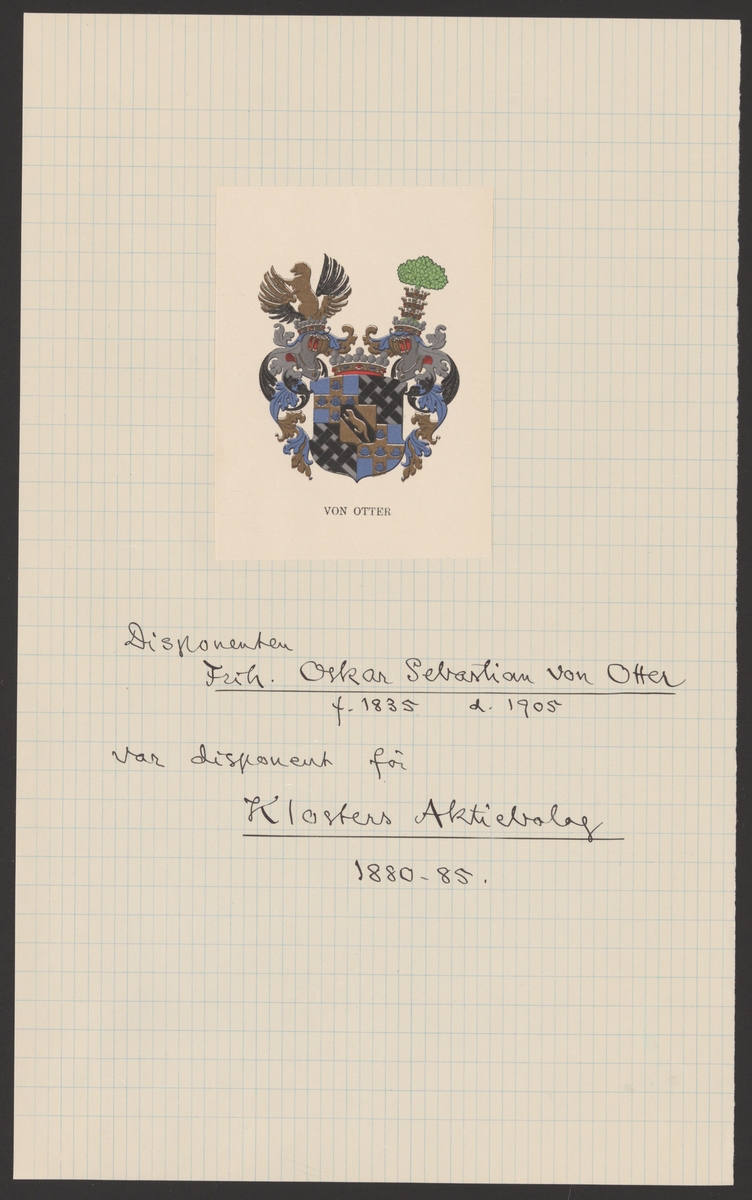 VON OTTER
Disponenten
Frih. Oskar Sebastian von Otter
f. 1835 d. 1905
var disponent för
Klosters Aktiebolag
1880-85.